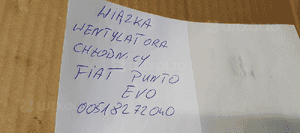 WIĄZKA
WENTYLATORA
CHŁODNICY
FIAT PUNTO
EVO
00518272040